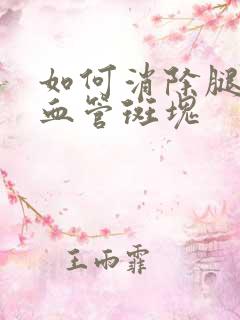 如何消除腿
血管斑塊
王雨霏